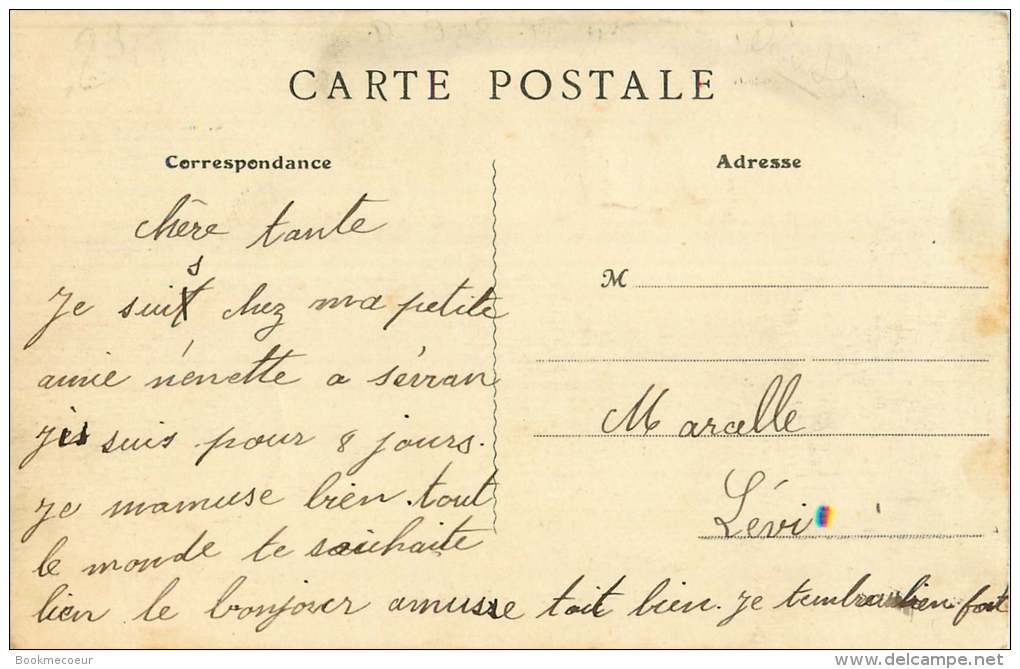 CARTE POSTALE
Correspondance
Adresse
chère tante
Je suis chez ma petite
amie nénette a sévran
J'is suis pour 8 jours.
Je mamuse bien. tout
le monde te souhaite
bien le bonjour amuse toit bien. Je tembra bien fort
M
Marcelle
Lévi
Bookmecoeur
delcampe.net